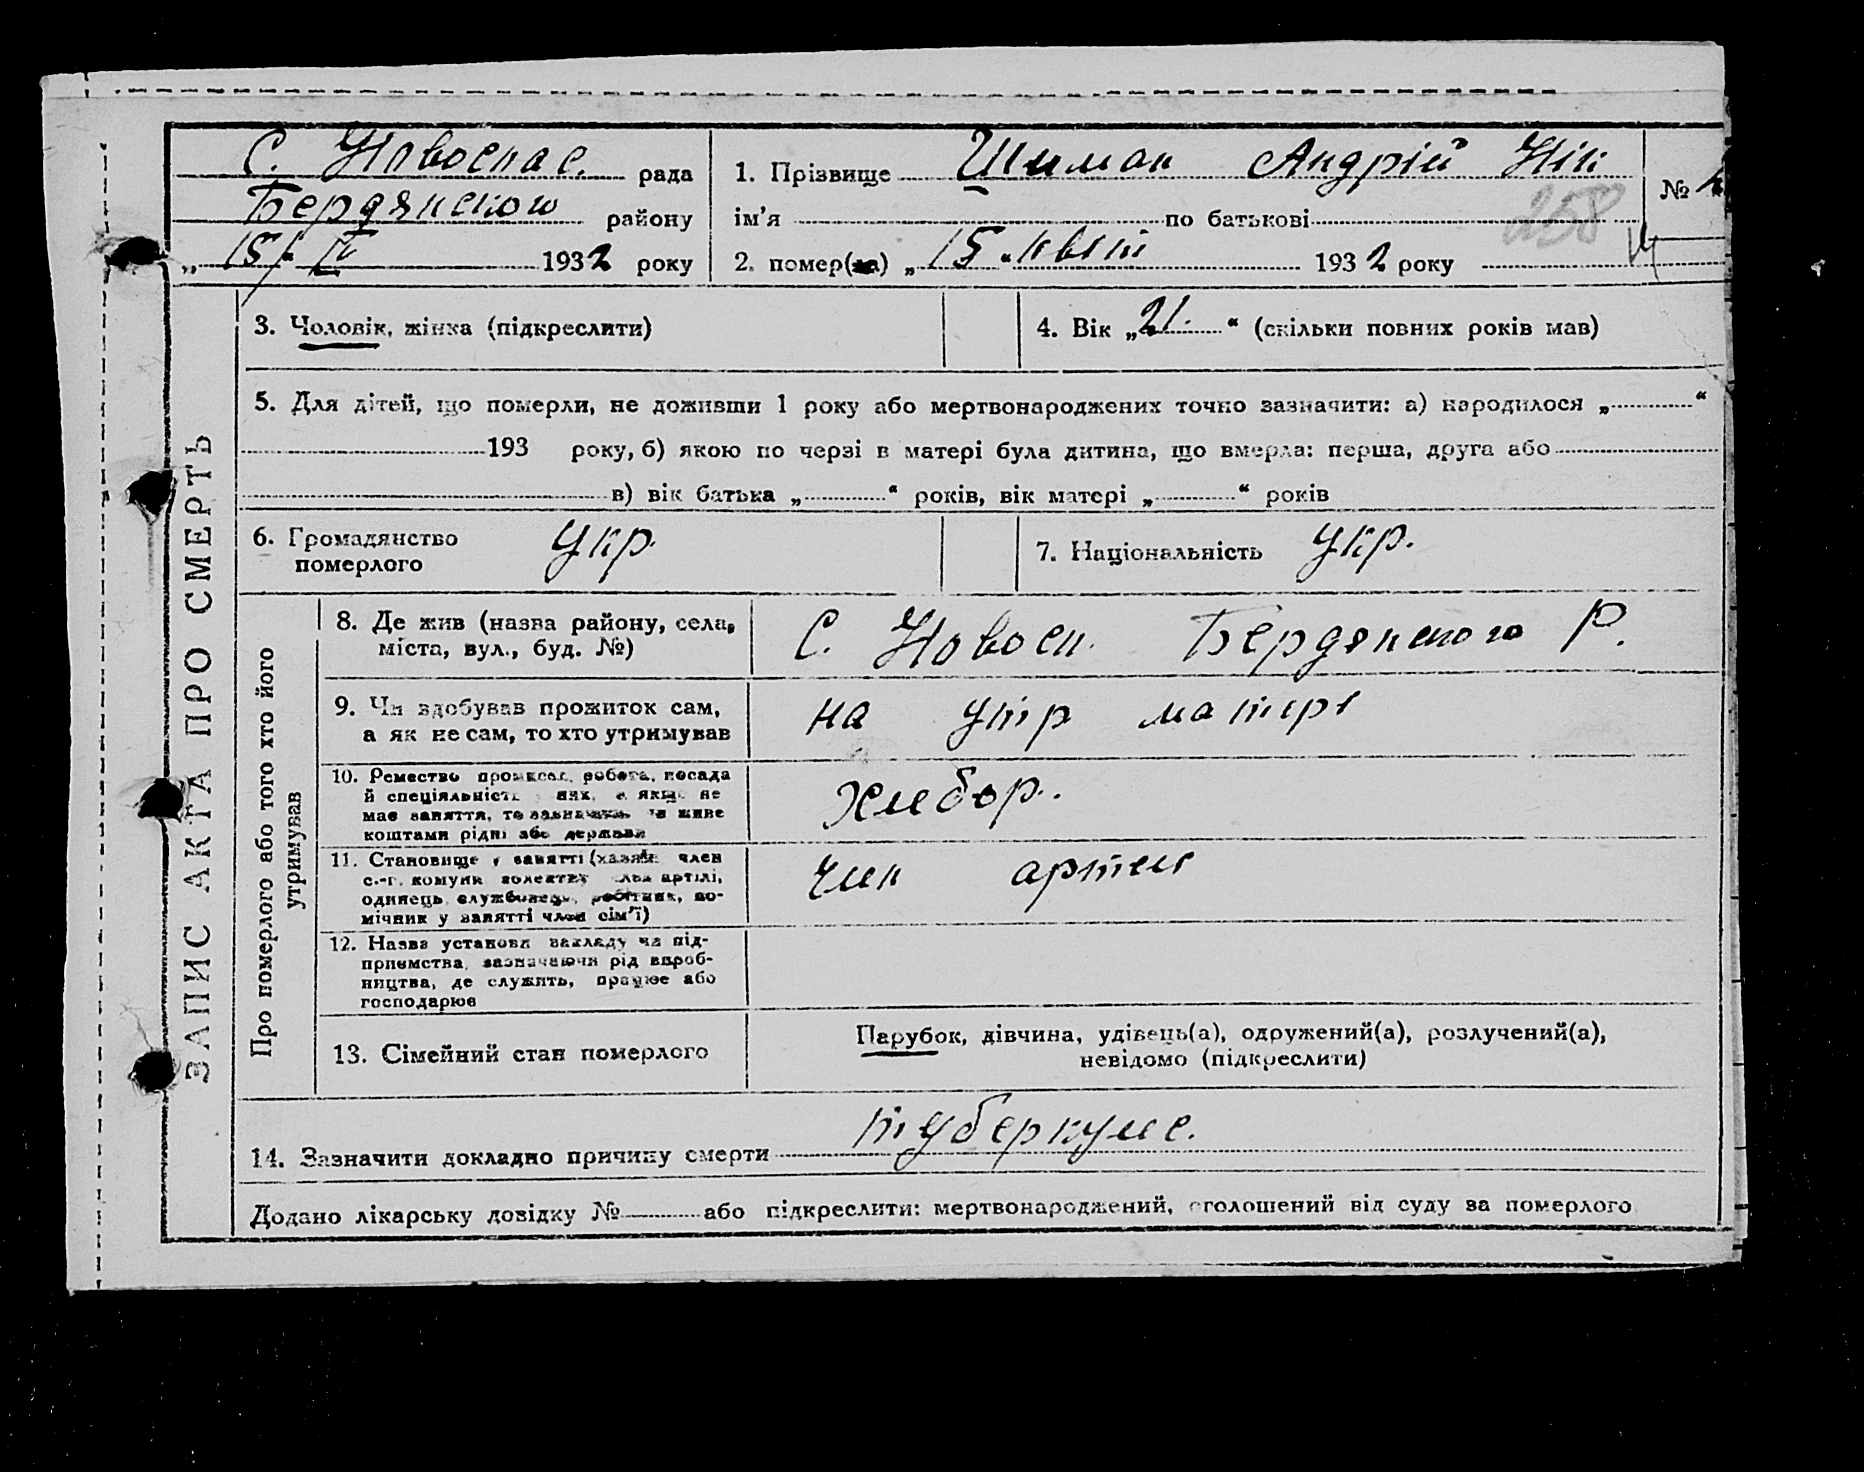 С. Новоспас. рада
Бердянского району
„15/“ IV 1932 року
1. Прізвище Шиман Андрій Нік
ім'я по батькові 258
№
2. помер(ла) „15“ квіт 1932 року
3. Чоловік, жінка (підкреслити)
4. Вік „21.“ (скільки повних років мав)
5. Для дітей, що померли, не доживши 1 року або мертвонароджених точно зазначити: а) народилося „ “
193 року, б) якою по черзі в матері була дитина, що вмерла: перша, друга або
в) вік батька „ “ років, вік матері „ “ років
6. Громадянство
померлого
укр.
7. Національність укр.
ЗАПИС АКТА ПРО СМЕРТЬ
Про померлого або того хто його
утримував
8. Де жив (назва району, села,
міста, вул., буд. №)
С. Новосп. Бердянского Р.
9. Чи здобував прожиток сам,
а як не сам, то хто утримував
на утр матері
10. Ремество промисел, робота, посада
й спеціяльність в них, а якщо не
має заняття, то зазначити чи живе
коштами рідні або держави
Хлебор.
11. Становище у занятті (хазяїн член
с.-г. комуни колективу артілі,
одинець службовець, робітник, по-
мічник у занятті член сім'ї)
член артели
12. Назва установи закладу чи під-
приємства, зазначаючи рід вироб-
ництва, де служить, працює або
господарює
13. Сімейний стан померлого
Парубок, дівчина, удівець(а), одружений(а), розлучений(а),
невідомо (підкреслити)
14. Зазначити докладно причину смерти туберкулс.
Додано лікарську довідку № або підкреслити: мертвонароджений, оголошений від суду за померлого